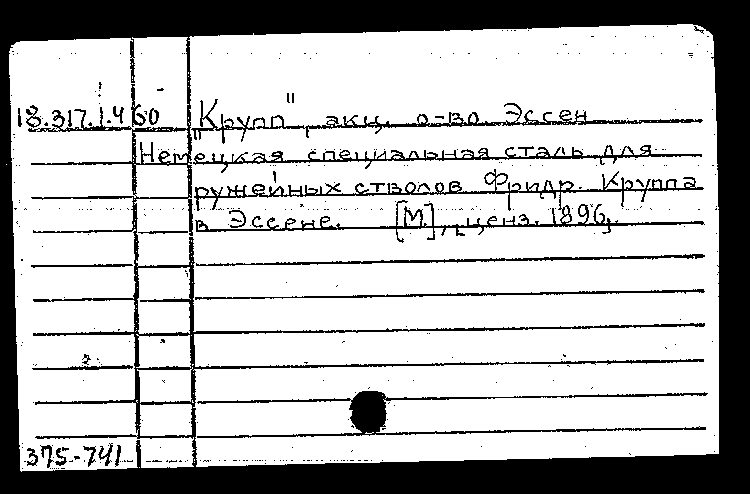 18.317.1.4 60 „Крупп", акц. о-во. Эссен
Немецкая специальная сталь для
ружейных стволов Фридр. Круппа
в Эссене. [М.], ценз. 1896.
375-741